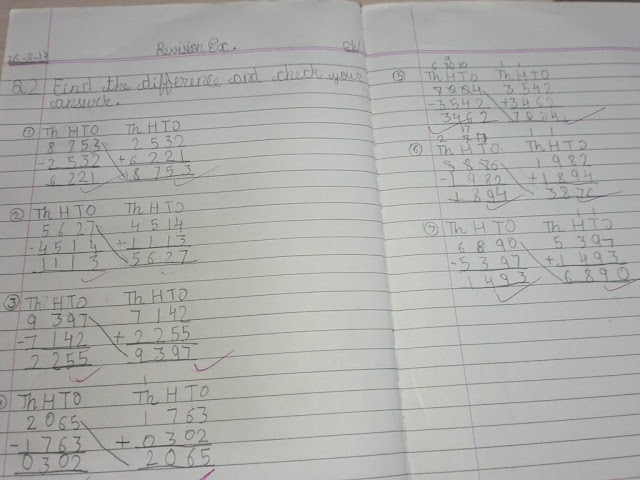 26-8-17 Revision Ex. CW
Q.2 Find the difference and check your
answer.
① Th H T O Th H T O
8 7 5 3 2 5 3 2
- 2 5 3 2 + 6 2 2 1
6 2 2 1 8 7 5 3
② Th H T O Th H T O
5 6 2 7 4 5 1 4
- 4 5 1 4 + 1 1 1 3
1 1 1 3 5 6 2 7
③ Th H T O Th H T O
9 3 9 7 7 1 4 2
- 7 1 4 2 + 2 2 5 5
2 2 5 5 9 3 9 7
1
Th H T O Th H T O
2 0 6 5 1 7 6 3
- 1 7 6 3 + 0 3 0 2
0 3 0 2 2 0 6 5
1 1
⑤ Th H T O Th H T O
3 5 4 2
- 3 5 4 2 + 3 4 6 2
3 4 6 2 7 0 0 4
1 1
⑥ Th H T O Th H T O
1 9 8 2
- 1 9 8 2 + 1 8 9 4
1 8 9 4 3 8 7 6
1 1
⑦ Th H T O Th H T O
6 8 9 0 5 3 9 7
- 5 3 9 7 + 1 4 9 3
1 4 9 3 6 8 9 0